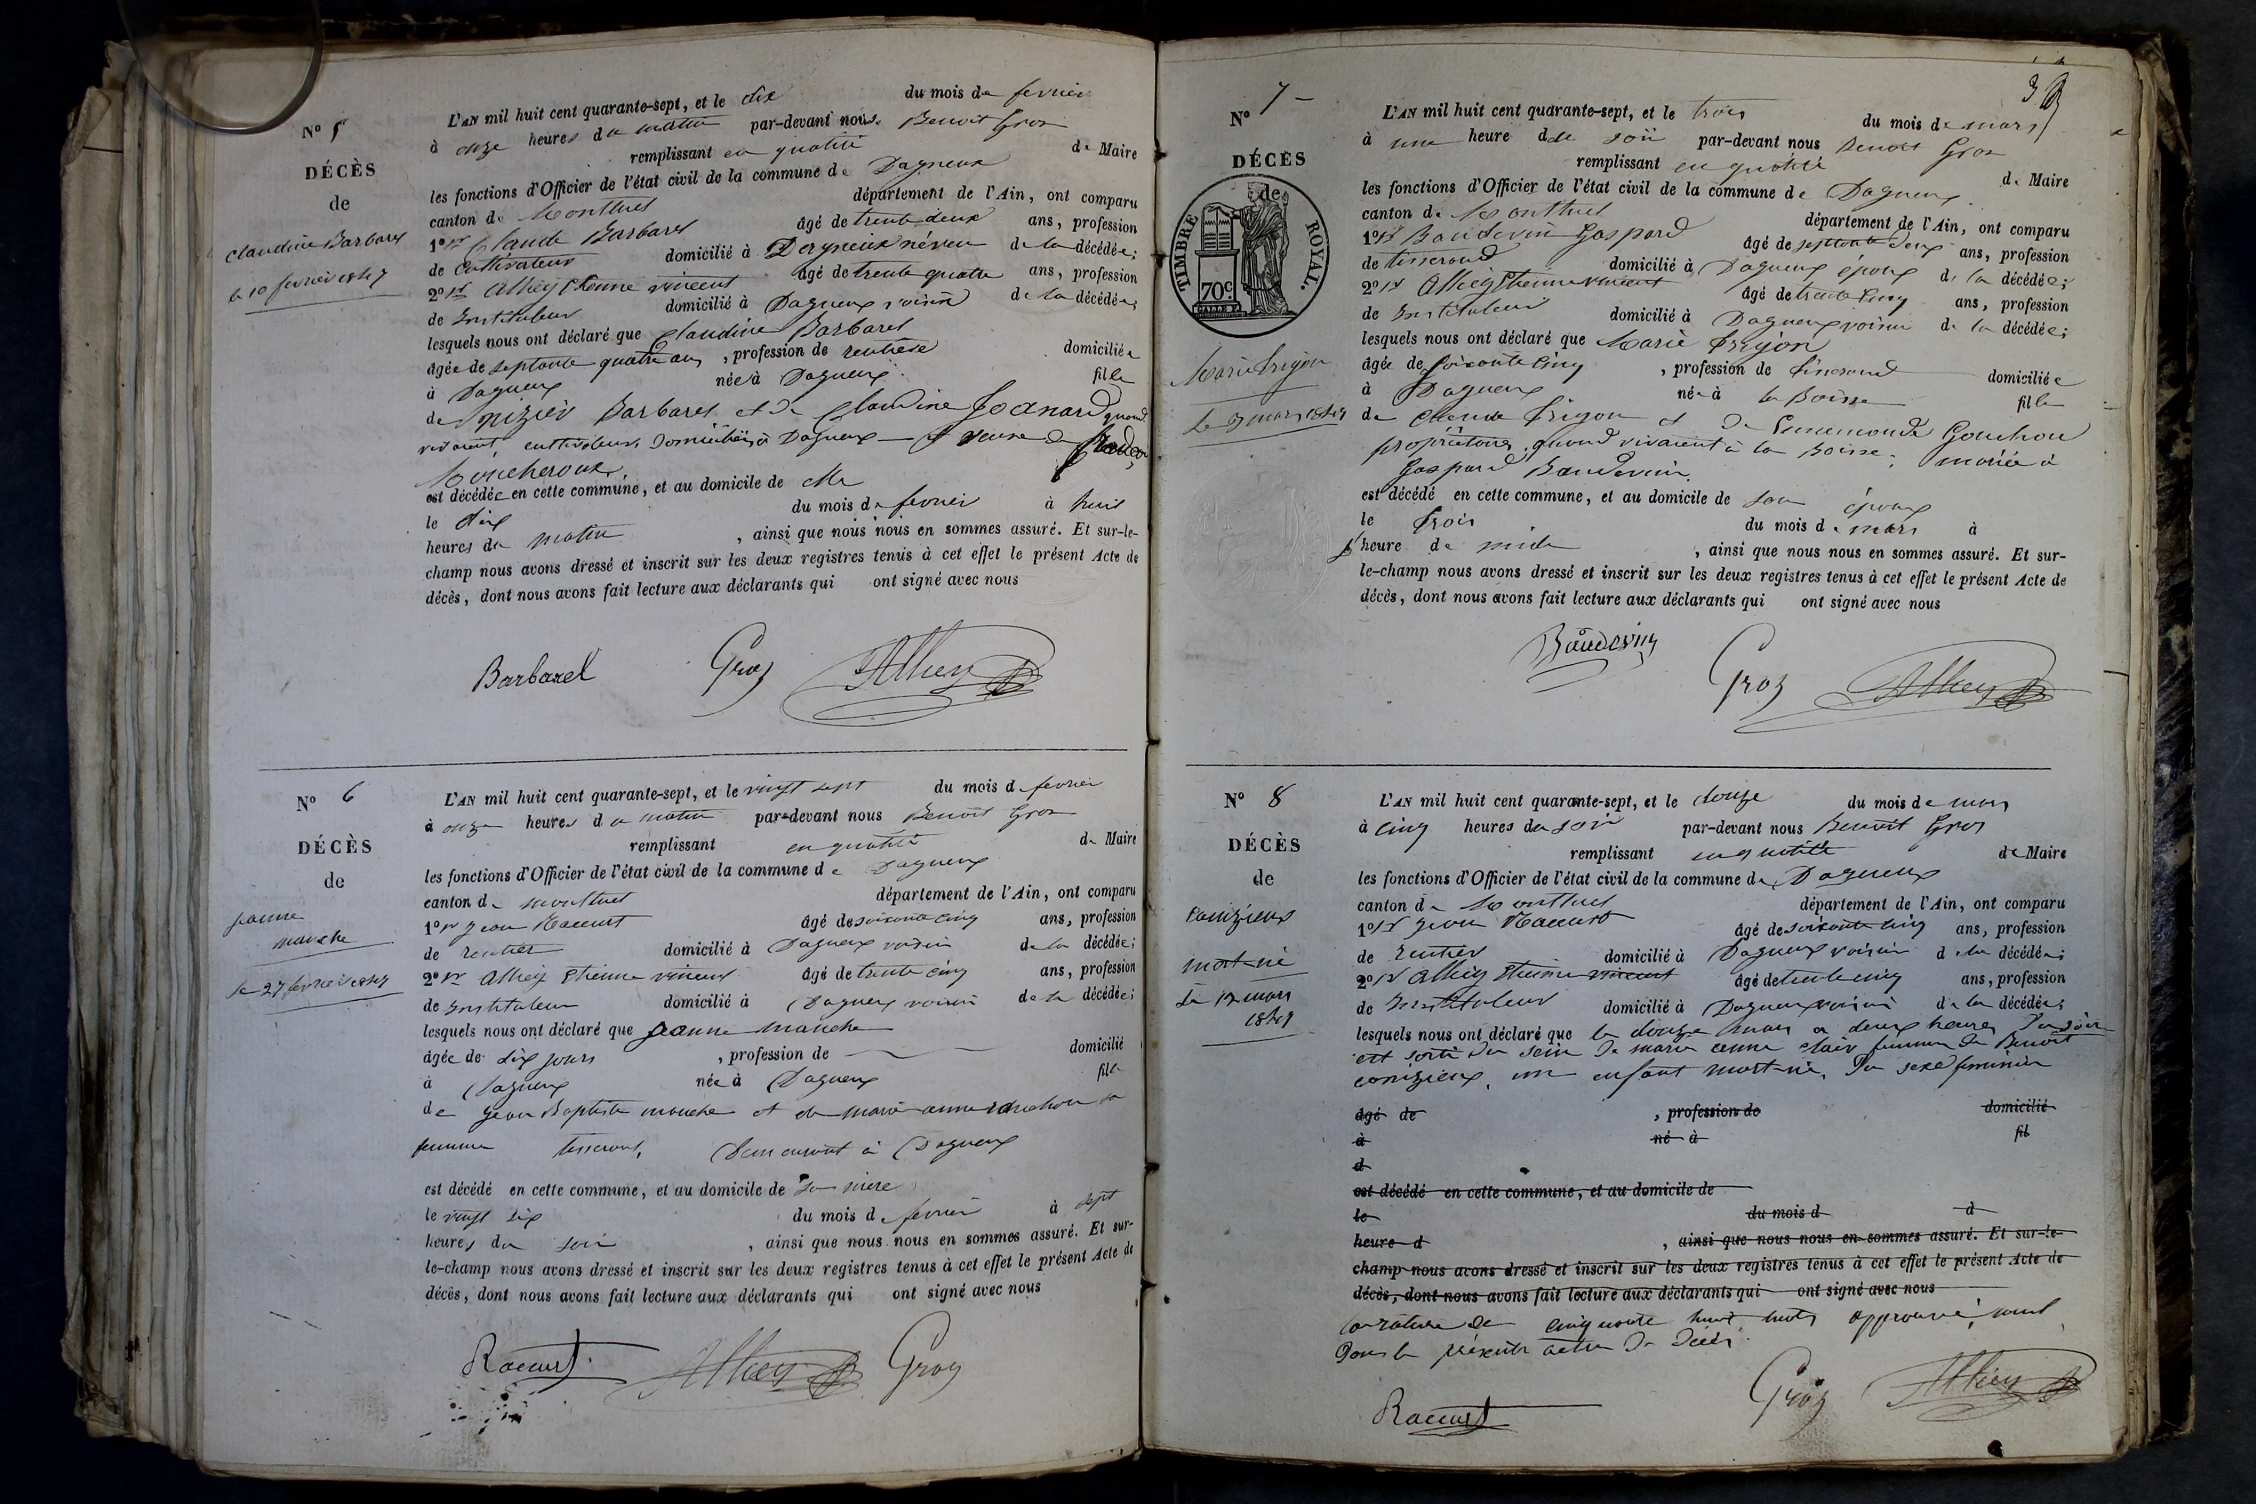 N° 5
DÉCÈS
de
Claudine Barbaret
le 10 fevrier 1847
L'AN mil huit cent quarante-sept, et le dix du mois de fevrier
à onze heures du matin par-devant nous Benoit Groz
remplissant en qualité de Maire
les fonctions d'Officier de l'état civil de la commune de Dagneux
canton de Montluel département de l'Ain, ont comparu
1° Claude Barbaret âgé de trente deux ans, profession
de Cultivateur domicilié à Dagneux néveu de la décédée;
2° Alhiey Etienne vincent âgé de trente quatre ans, profession
de Instituteur domicilié à Dagneux voisin de la décédée;
lesquels nous ont déclaré que Claudine Barbaret
âgée de septante quatre ans, profession de rentière domiciliée
à Dagneux née à Dagneux fille
de nizier Barbaret et de Claudine quand
vivaient cultivateurs domiciliés à Dagneux et veuve de
Moncheroux
est décédée en cette commune, et au domicile de elle
le dix du mois de fevrier à huit
heures du matin, ainsi que nous nous en sommes assuré. Et sur-le-
champ nous avons dressé et inscrit sur les deux registres tenus à cet effet le présent Acte de
décès, dont nous avons fait lecture aux déclarants qui ont signé avec nous
Barbaret Groz Alhiey
N° 6
DÉCÈS
de
jeanne
manche
le 27 fevrier 1847
L'AN mil huit cent quarante-sept, et le vingt sept du mois de fevrier
à onze heures du matin par-devant nous Benoit Groz
remplissant en qualité de Maire
les fonctions d'Officier de l'état civil de la commune de Dagneux
canton de montluel département de l'Ain, ont comparu
1° jean Raccurt âgé de soixante cinq ans, profession
de rentier domicilié à Dagneux voisin de la décédée;
2° Alhiey Etienne vincent âgé de trente cinq ans, profession
de Instituteur domicilié à Dagneux voisin de la décédée;
lesquels nous ont déclaré que jeanne manche
âgée de dix jours, profession de domicilié
à Dagneux née à Dagneux fille
de jean Baptiste manche et de marie anne
femme tisserand, demeurant à Dagneux
est décédé en cette commune, et au domicile de sa mère
le vingt six du mois de fevrier à sept
heures du soir, ainsi que nous nous en sommes assuré. Et sur-
le-champ nous avons dressé et inscrit sur les deux registres tenus à cet effet le présent Acte de
décès, dont nous avons fait lecture aux déclarants qui ont signé avec nous
Raccurt Alhiey Groz
3
N° 7
DÉCÈS
de
TIMBRE ROYAL.
70c
Marie Frigon
le 3 mars 1847
L'AN mil huit cent quarante-sept, et le trois du mois de mars
à une heure du soir par-devant nous Benoit Groz
remplissant en qualité de Maire
les fonctions d'Officier de l'état civil de la commune de Dagneux
canton de Montluel département de l'Ain, ont comparu
1° Baudevin Gaspard âgé de septante deux ans, profession
de tisserand domicilié à Dagneux époux de la décédée;
2° Alhiey Etienne vincent âgé de trente cinq ans, profession
de Instituteur domicilié à Dagneux voisin de la décédée;
lesquels nous ont déclaré que Marie Frigon
âgée de soixante cinq, profession de tisserand domiciliée
à Dagneux née à la Boisse fille
de Claude Frigon et de Ennemonde Gonchon
propriétaires, quand vivaient à la Boisse; mariée à
Gaspard Baudevin
est décédé en cette commune, et au domicile de son époux
le trois du mois de mars à
heure de midi, ainsi que nous nous en sommes assuré. Et sur-
le-champ nous avons dressé et inscrit sur les deux registres tenus à cet effet le présent Acte de
décès, dont nous avons fait lecture aux déclarants qui ont signé avec nous
Baudevin Groz Alhiey
N° 8
DÉCÈS
de
Conizieux
mort-né
le 12 mars
1847
L'AN mil huit cent quarante-sept, et le douze du mois de mars
à cinq heures du soir par-devant nous Benoit Groz
remplissant en qualité de Maire
les fonctions d'Officier de l'état civil de la commune de Dagneux
canton de Montluel département de l'Ain, ont comparu
1° jean Raccurt âgé de soixante cinq ans, profession
de rentier domicilié à Dagneux voisin de la décédée;
2° Alhiey Etienne vincent âgé de trente cinq ans, profession
de Instituteur domicilié à Dagneux voisin de la décédée;
lesquels nous ont déclaré que le douze mars a deux heures du soir
est sortie du sein de marie anne clair femme de Benoit
conizieux, un enfant mort-né, du sexe feminin
âgé de, profession de domicilié
à né à fil
d
est décédé en cette commune, et au domicile de
le du mois d à
heure d, ainsi que nous nous en sommes assuré. Et sur-le-
champ nous avons dressé et inscrit sur les deux registres tenus à cet effet le présent Acte de
décès, dont nous avons fait lecture aux déclarants qui ont signé avec nous
la rature de cinquante huit mots approuvé,
dans le présent acte de décès.
Raccurt Groz Alhiey